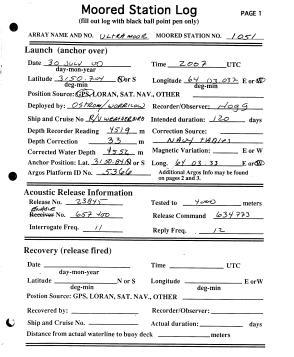 Moored Station Log
PAGE 1
(fill out log with black ball point pen only)
ARRAY NAME AND NO. ULTRAMOOR MOORED STATION NO. 1051
Launch (anchor over)
Date 30 July 00 Time 2007 UTC
day-mon-year
Latitude 3150.704 N or S Longitude 64 03.032 E or W
deg-min deg-min
Postion Source: GPS, LORAN, SAT. NAV., OTHER
Deployed by: OSTROM/WORRILOW Recorder/Observer: HOGG
Ship and Cruise No. R/V WEATHERBIRD Intended duration: 120 days
Depth Recorder Reading 4519 m Correction Source:
Depth Correction 33 m NAVY TABLES
Corrected Water Depth 4552 m Magnetic Variation: E or W
Anchor Position: Lat. N or S Long. 64 03.33 E or W
Argos Platform ID No. 5366 Additional Argos Info may be found
on pages 2 and 3.
Acoustic Release Information
Release No. 23845 Tested to 4000 meters
Receiver No. 657400 Release Command 634773
Interrogate Freq. 11 Reply Freq. 12
Recovery (release fired)
Date Time UTC
day-mon-year
Latitude N or S Longitude E or W
deg-min deg-min
Postion Source: GPS, LORAN, SAT. NAV., OTHER
Recovered by: Recorder/Observer:
Ship and Cruise No. Actual duration: days
Distance from actual waterline to buoy deck meters